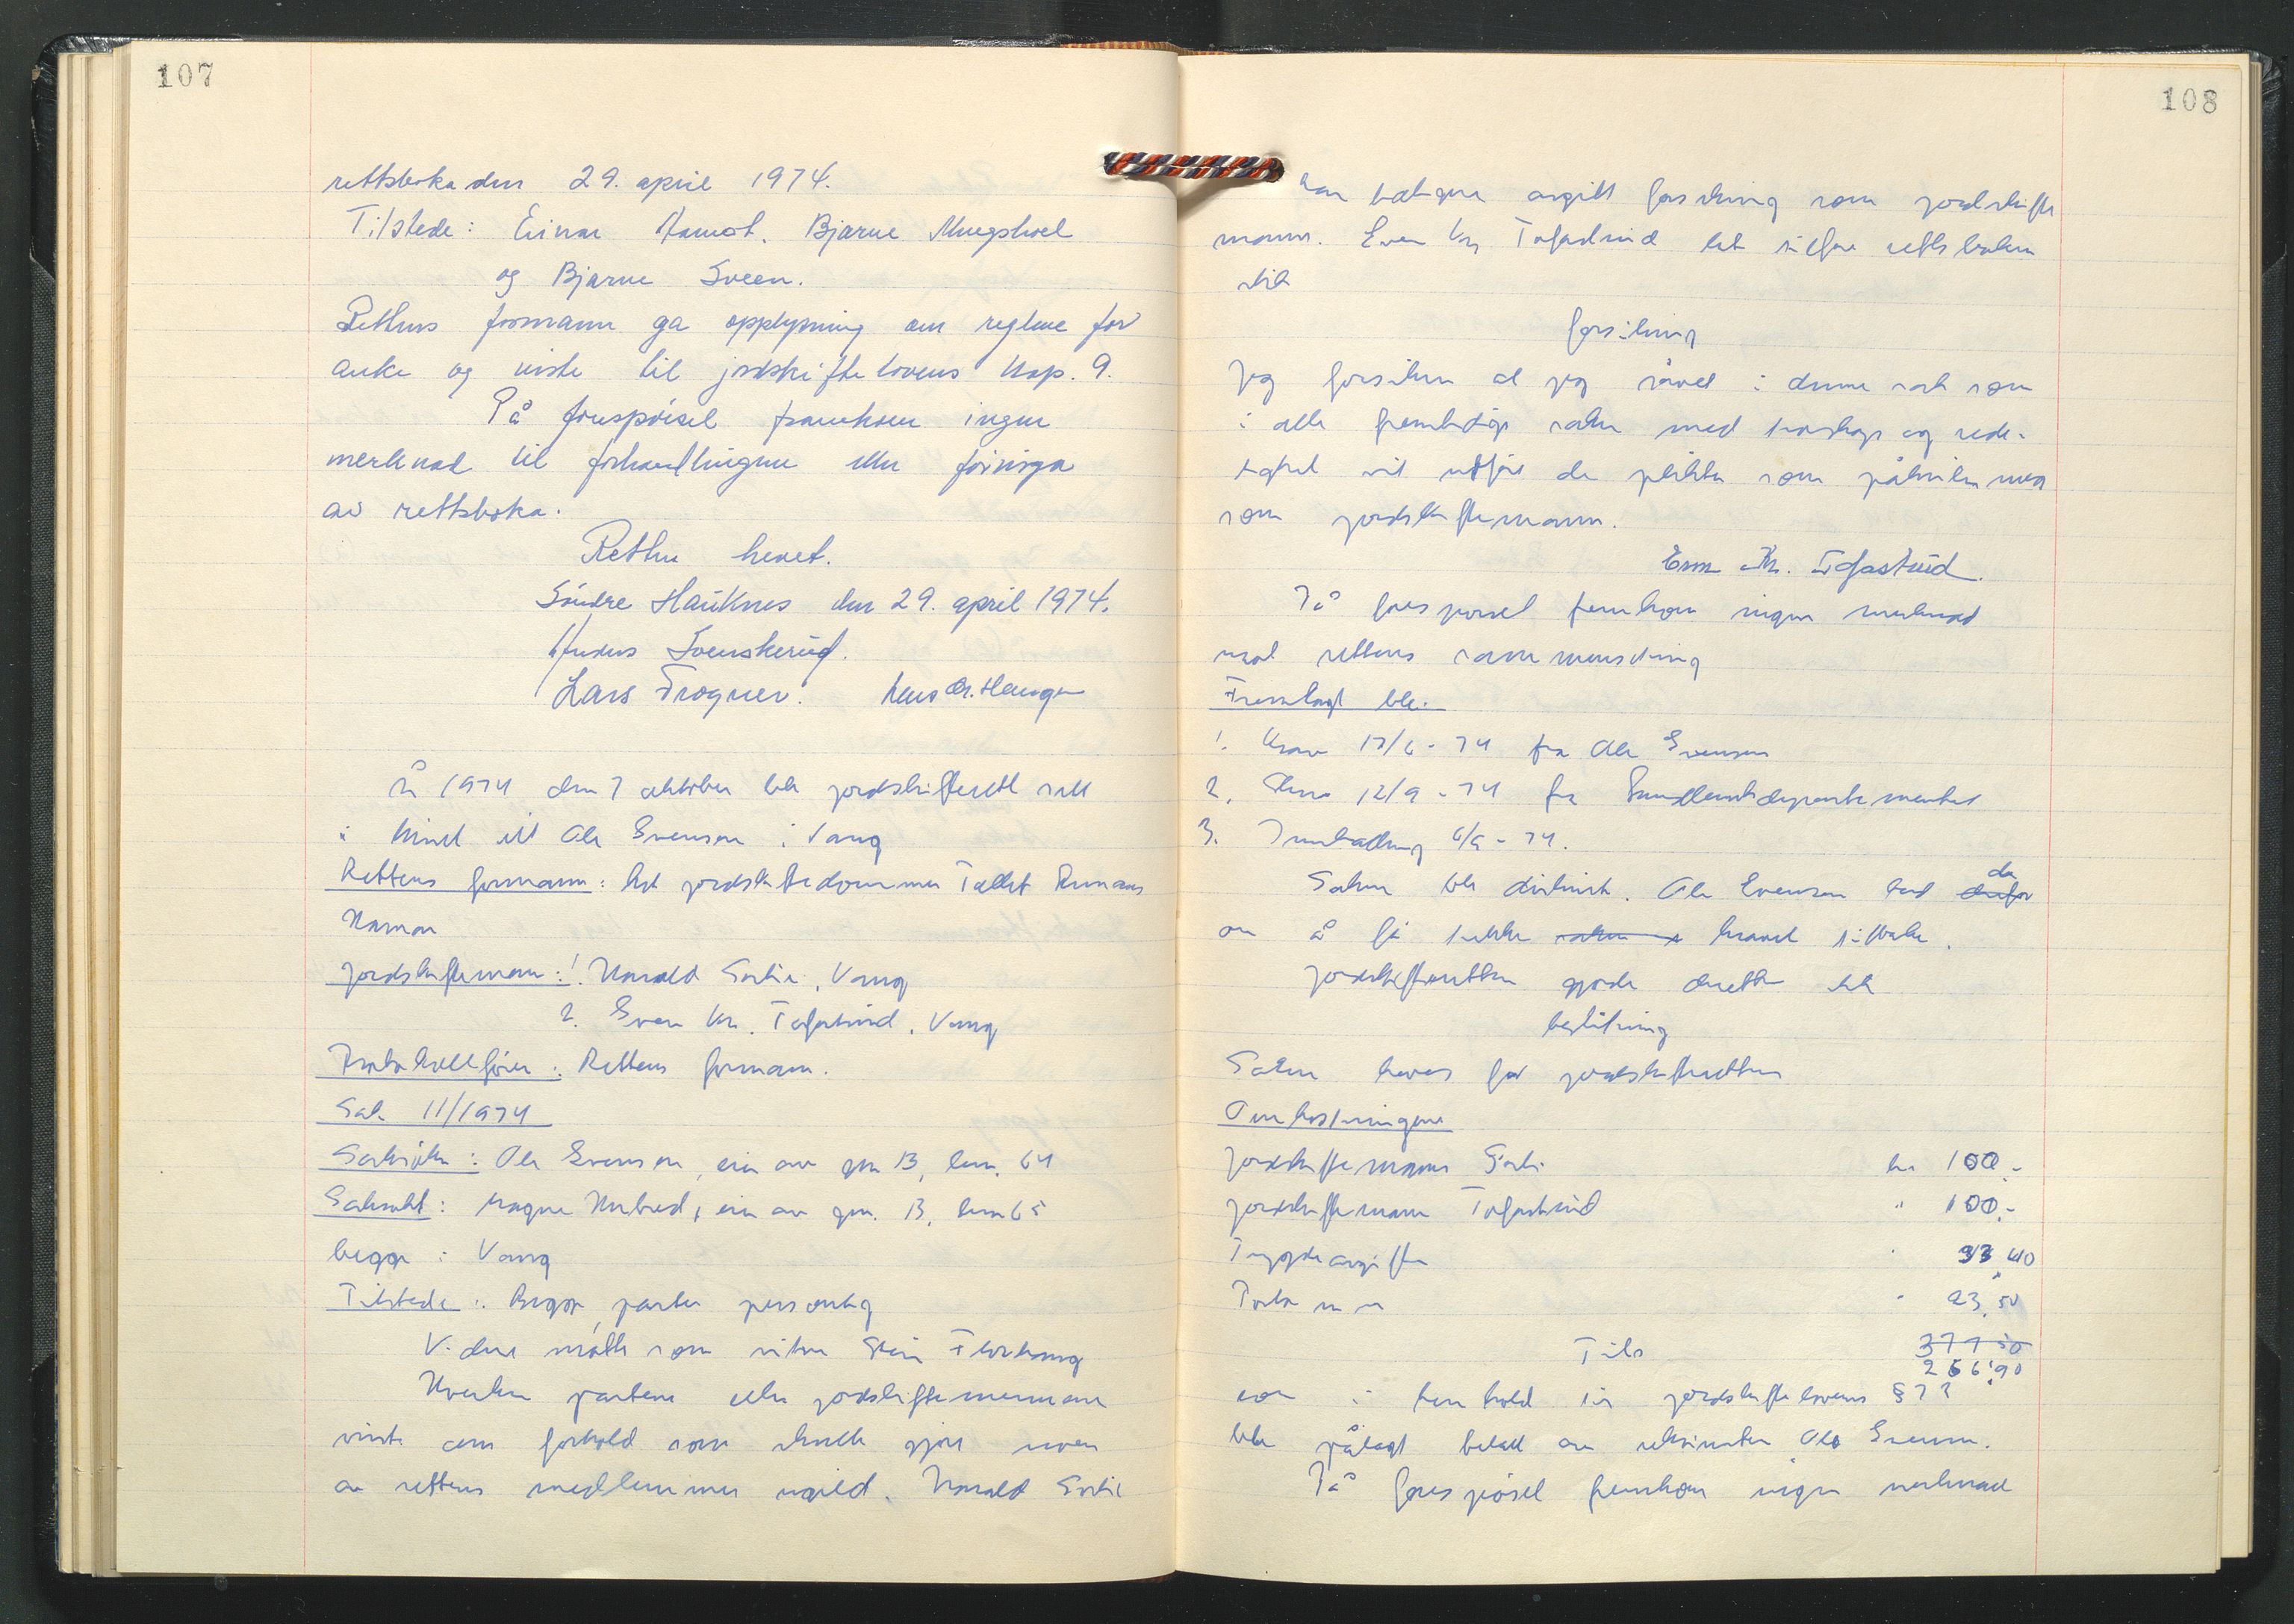 107
rettsboka den 29. april 1974.
Tilstede: Einar Aamot. Bjarne
og Bjarne Sveen.
Rettens formann ga opplysning om reglene for
anke og viste til jordskiftelovens kap. 9.
På forespørsel framkom ingen
merknad til forhandlingene eller föringa
av rettsboka.
Retten hevet.
Söndre Hauknes den 29. april 1974.
Anders Svenskerud.
Lars Frogner. Hans Chr. Haugen
År 1974 den 7 oktober ble jordskifterett satt
i hos Ole Evensen i Vang
Rettens formann: jordskiftedommer
Hamar
Jordskiftemenn: 1. Harald Sørlie, Vang
2. Even Kr. Tofastrud, Vang
Protokollfører: Rettens formann.
Sak 11/1974
Saksøker: Ole Evensen, eier av gnr 13, bnr. 64
Saksøkt: Magne eier av gnr. 13, bnr 65
begge i Vang
Tilstede: Begge parter personlig
Videre møtte som vitne Stein
Hverken partene eller jordskiftemennene
viste om forhold som skulle gjøre noen
av rettens medlemmer ugild. Harald Sørlie
108
har tidligere avgitt forsikring som jordskifte
mann. Even Kr Tofastrud ble i følge rettsboken
slik
forsikring
Jeg forsikrer at jeg såvel i denne sak som
i alle fremtidige saker med troskap og rede-
lighet vil utføre de plikter som påhviler meg
som jordskiftemann.
Even Kr. Tofastrud.
På forespørsel fremkom ingen merknad
mot rettens sammensetning
Fremlagt ble:
1. Krav 17/6-74 fra Ole Evensen
2. Skriv 12/9-74 fra Landbruksdepartementet
3. Innkalling 6/9-74.
Saken ble diskutert. Ole Evensen bad da derfor
om å få trekke saken kravet tilbake.
Jordskifteretten gjorde deretter slik
beslutning
Saken heves for jordskifteretten
Omkostningene
Jordskiftemann Sørli kr 100.-
Jordskiftemann Tofastrud " 100.-
Trygdeavgifter " 33,40
Porto m m " 23,50
Tils 371 50
256,90
som i henhold til jordskiftelovens § 72
ble pålagt betalt av rekvirenten Ole Evensen.
På forespørsel fremkom ingen merknad